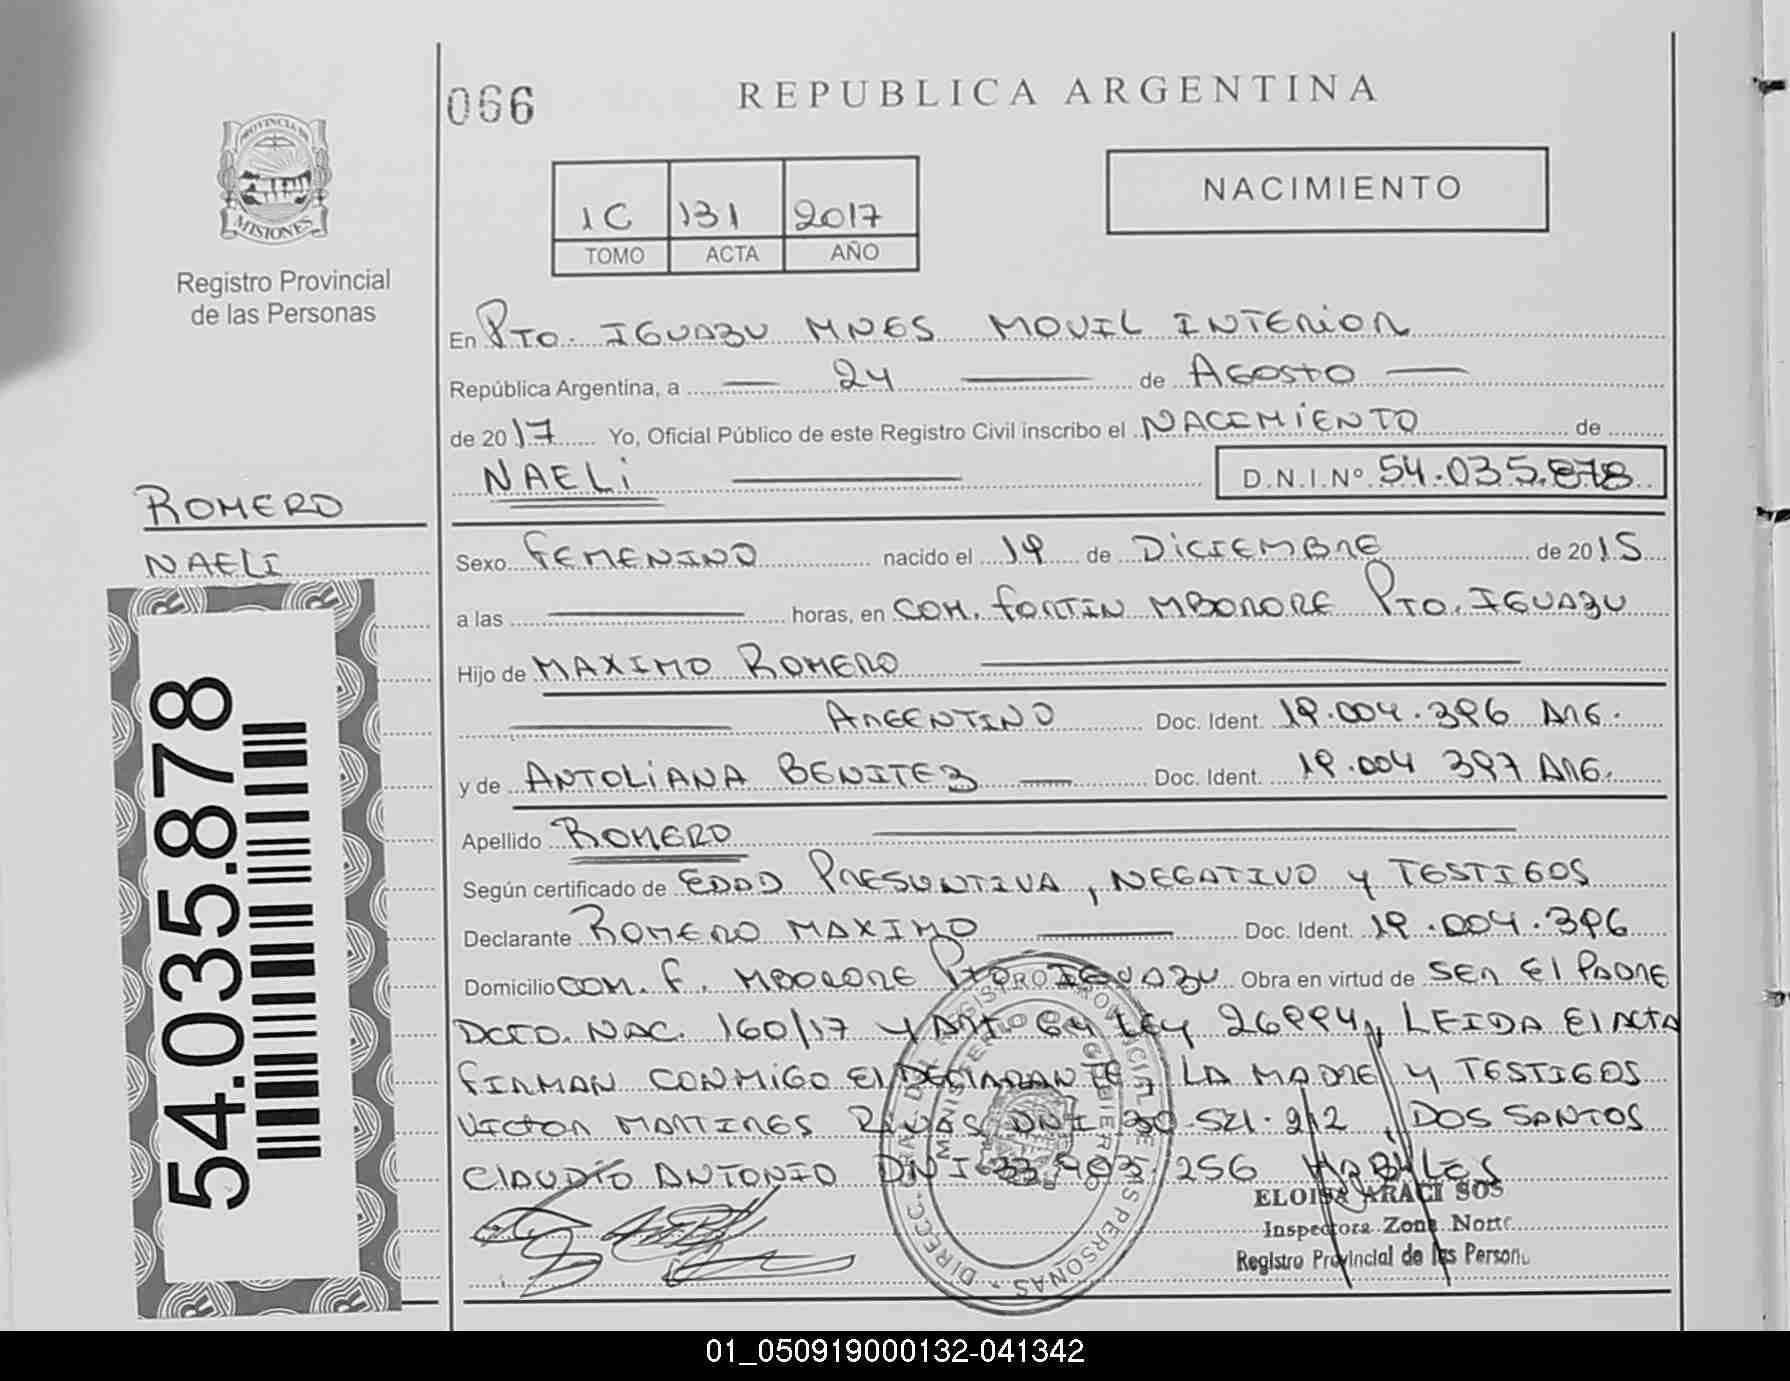 066
REPUBLICA ARGENTINA
PROVINCIA DE
MISIONES
Registro Provincial
de las Personas
1C 131 2017
TOMO ACTA AÑO
NACIMIENTO
En PTO. IGUAZU MNES MOVIL INTERIOR
República Argentina, a 24 de AGOSTO
de 2017 Yo, Oficial Público de este Registro Civil inscribo el NACIMIENTO de
NAELI D.N.I.Nº 54.035.878
ROMERO
NAELI
Sexo FEMENINO nacido el 19 de DICIEMBRE de 2015
a las horas, en COM. FORTIN MBORORE PTO. IGUAZU
Hijo de MAXIMO ROMERO
ARGENTINO Doc. Ident. 19.004.396 ARG.
y de ANTOLIANA BENITEZ Doc. Ident. 19.004 397 ARG.
Apellido ROMERO
Según certificado de EDAD PRESUNTIVA, NEGATIVO Y TESTIGOS
Declarante ROMERO MAXIMO Doc. Ident. 19.004.396
Domicilio COM. F. MBORORE PTO IGUAZU Obra en virtud de SER El PADRE
DCTO. NAC. 160/17 Y ART 64 LEY 26994, LEIDA El ACTA
FIRMAN CONMIGO El DECLARANTE, LA MADRE Y TESTIGOS
VICTOR MARTINES RIVAS DNI 30.521.212, DOS SANTOS
CLAUDIO ANTONIO DNI 33.903.256 HABILES
ELOISA ARACI SOS
Inspectora Zona Norte
Registro Provincial de las Persona
DIRECC. GRAL. DEL REGISTRO PROVINCIAL DE LAS PERSONAS
MINISTERIO DE GOBIERNO
54.035.878
01_050919000132-041342